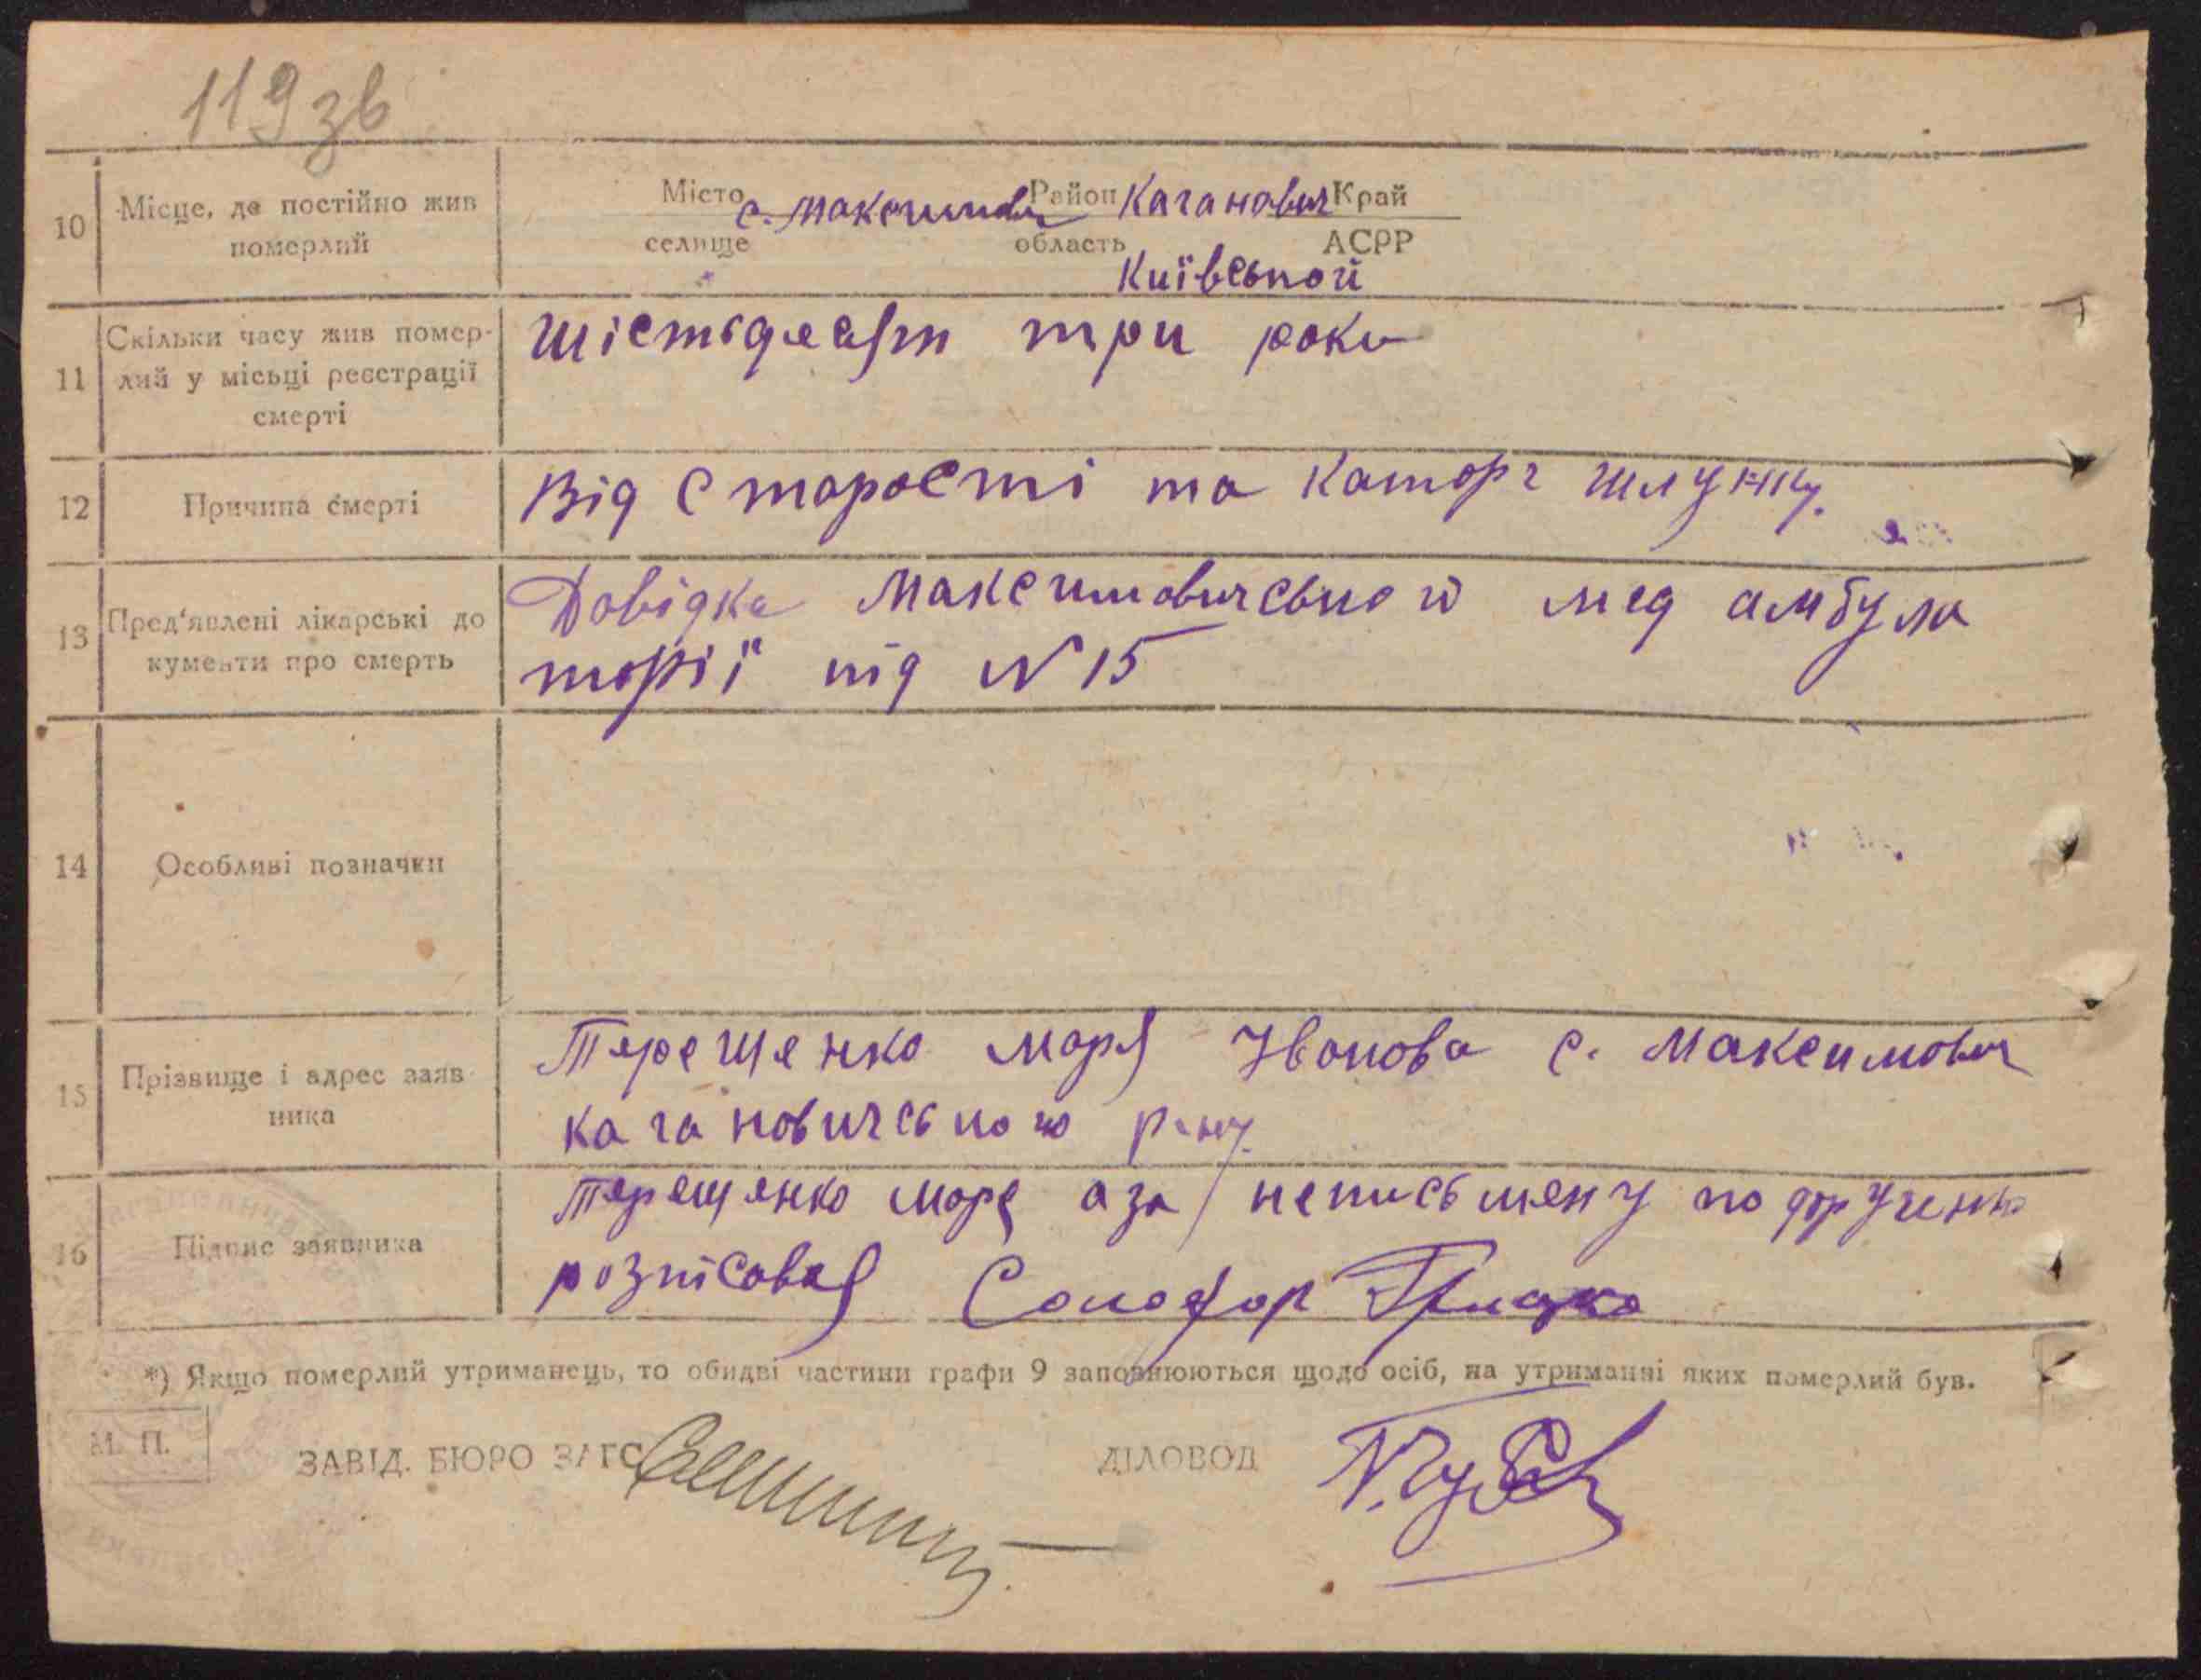 119 зв
10 Місце, де постійно жив померлий
Місто селище с. Максимович Район Каганович область Київської Край АСРР
11 Скільки часу жив померлий у місьці реєстрації смерті
шістьдесят три роки
12 Причина смерті
Від старості та катар шлунку.
13 Пред'явлені лікарські до
кументи про смерть
Довідка Максимовичсьной мед амбула
торії під N 15
14 Особливі позначки
15 Прізвище і адрес заяв
ника
Терещенко Маря Іванова с. Максимович
Кагановичсьного р-ну.
16 Підпис заявника
Терещенко а за неписьмену по доручен
розписався Грицко
*) Якщо померлий утриманець, то обидві частини графи 9 заповнюються щодо осіб, на утриманні яких померлий був.
М. П.
ЗАВІД. БЮРО ЗАГС ДІЛОВОД